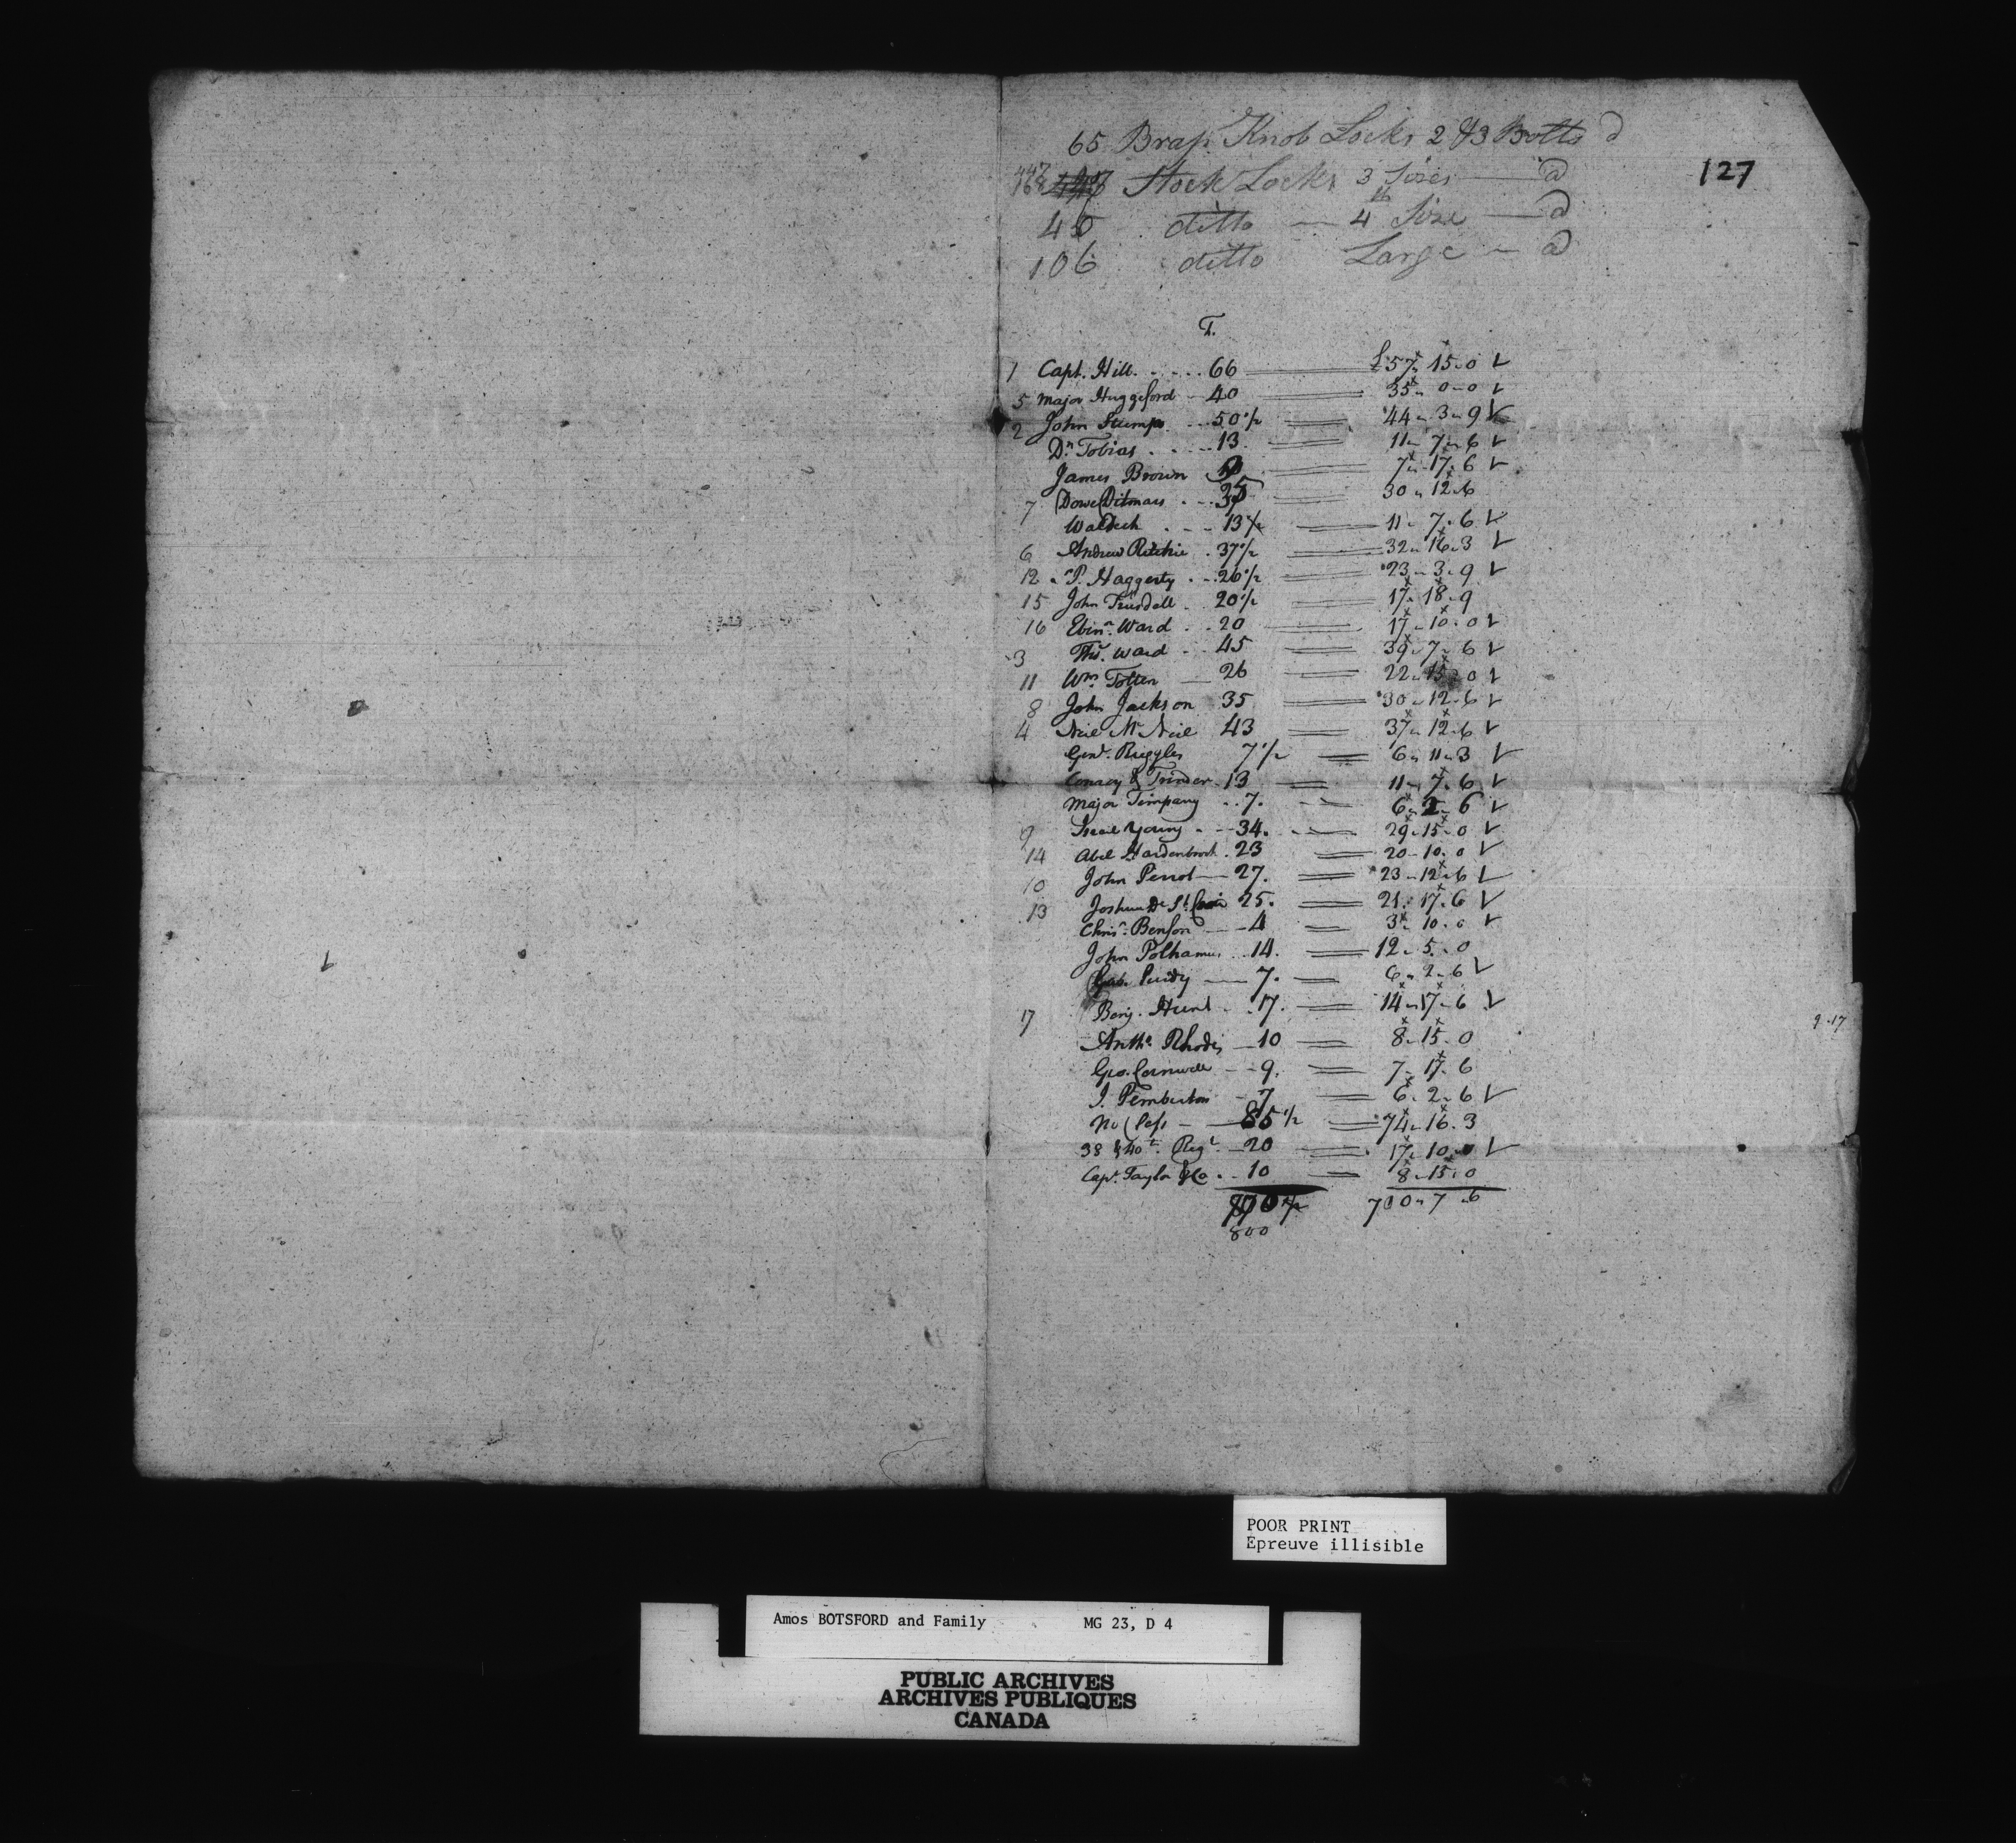 65 Brass Knob Locks 2 & 3 Bolts @
127
Stock Locks 3 Sizes — @
46 ditto — 4th Size — @
106 ditto Large — @
T.
1 Capt. Hill. . . . . 66 — £57 " 15 " 0 ✓
5 Major Huggeford — 40 — 35 " 0 " 0 ✓
2 John Stump . . . 50 1/2 — 44 " 3 " 9 ✓
Dr. Tobias . . . . 13 — 11 " 7 " 6 ✓
James Brown 9 — 7 " 17 " 6 ✓
7 Dowe Ditmars . . . 35 — 30 " 12 " 6
Waldeck . . . 13 — 11 " 7 " 6 ✓
6 Andrew Ritchie . 37 1/2 — 32 " 16 " 3 ✓
12 P. Haggerty . . . 26 1/2 — 23 " 3 " 9 ✓
15 John Trusdell . 20 1/2 — 17 " 18 " 9
16 Ebinr. Ward . . 20 — 17 " 10 " 0 ✓
3 Thos. Ward . . 45 — 39 " 7 " 6 ✓
11 Wm. Totten — 26 — 22 " 15 " 0 ✓
8 John Jackson 35 — 30 " 12 " 6 ✓
4 Neil Mc Neil 43 — 37 " 12 " 6 ✓
Genl. Ruggles 7 1/2 — 6 " 11 " 3 ✓
Conroy & Trinder . 13 — 11 " 7 " 6 ✓
Major Timpany . . 7 . — 6 " 2 " 6 ✓
9 Israel Young . . . 34 . — 29 " 15 " 0 ✓
14 Abel Hardenbrook . 23 — 20 " 10 " 0 ✓
10 John Perrot — 27 . — 23 " 12 " 6 ✓
13 Joshua De St. Croix 25 . — 21 " 17 " 6 ✓
Chrisr. Benson — 4 — 3 " 10 " 0 ✓
John Polhamus . . 14 . — 12 " 5 " 0
Gab. Purdy — 7 . — 6 " 2 " 6 ✓
17 Benj. Hunt . . 17 . — 14 " 17 " 6 ✓
9-17
Antho. Rhodes — 10 — 8 " 15 " 0
Geo. Cornwell — 9 . — 7 " 17 " 6
J. Pemberton — 7 — 6 " 2 " 6 ✓
85 1/2 — 74 " 16 " 3
38 & 40th. Regt. — 20 — 17 " 10 " 0 ✓
Capt. Taylor & Co . . . 10 — 8 " 15 " 0
870 1/2 700 " 7 " 6
800
POOR PRINT
Epreuve illisible
Amos BOTSFORD and Family MG 23, D 4
PUBLIC ARCHIVES
ARCHIVES PUBLIQUES
CANADA